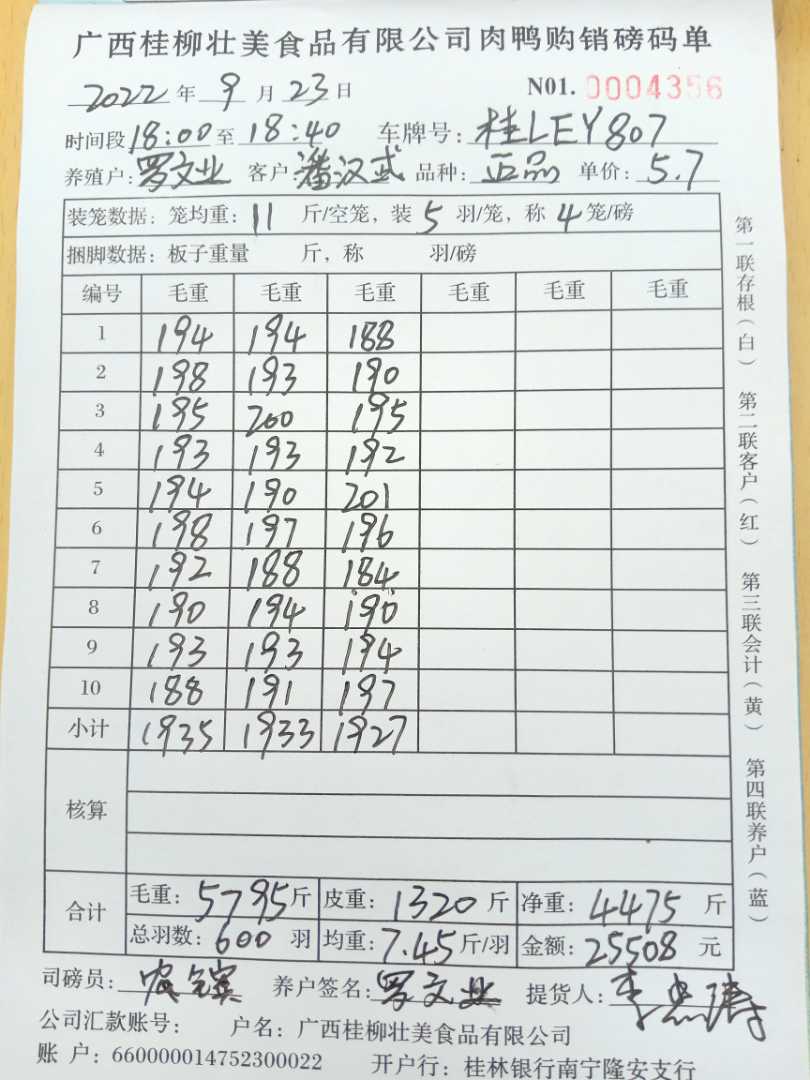 广西桂柳壮美食品有限公司肉鸭购销磅码单
2022 年 9 月 23 日 N01. 0004356
时间段 18:00 至 18:40 车牌号: 桂LEY807
养殖户: 罗文业 客户: 潘汉武 品种: 正品 单价: 5.7
装笼数据: 笼均重: 11 斤/空笼, 装 5 羽/笼, 称 4 笼/磅
捆脚数据: 板子重量 斤, 称 羽/磅
编号 毛重 毛重 毛重 毛重 毛重 毛重
1 194 194 188
2 198 193 190
3 195 200 195
4 193 193 192
5 194 190 201
6 198 197 196
7 192 188 184
8 190 194 190
9 193 193 194
10 188 191 197
小计 1935 1933 1927
核算
合计 毛重: 5795 斤 皮重: 1320 斤 净重: 4475 斤
总羽数: 600 羽 均重: 7.45 斤/羽 金额: 25508 元
司磅员: 养户签名: 罗文业 提货人: 李
公司汇款账号: 户名: 广西桂柳壮美食品有限公司
账 户: 660000014752300022 开户行: 桂林银行南宁隆安支行
第一联存根(白) 第二联客户(红) 第三联会计(黄) 第四联养户(蓝)